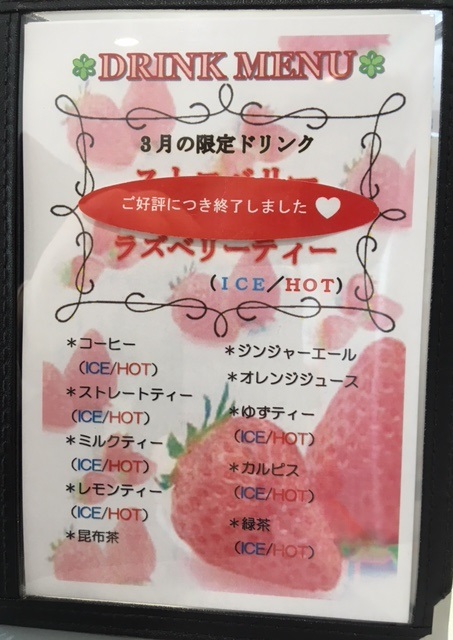 DRINK MENU
3月の限定ドリンク
ストロベリー
ご好評につき終了しました
ラズベリーティー
(ICE/HOT)
*コーヒー
(ICE/HOT)
*ストレートティー
(ICE/HOT)
*ミルクティー
(ICE/HOT)
*レモンティー
(ICE/HOT)
*昆布茶
*ジンジャーエール
*オレンジジュース
*ゆずティー
(ICE/HOT)
*カルピス
(ICE/HOT)
*緑茶
(ICE/HOT)